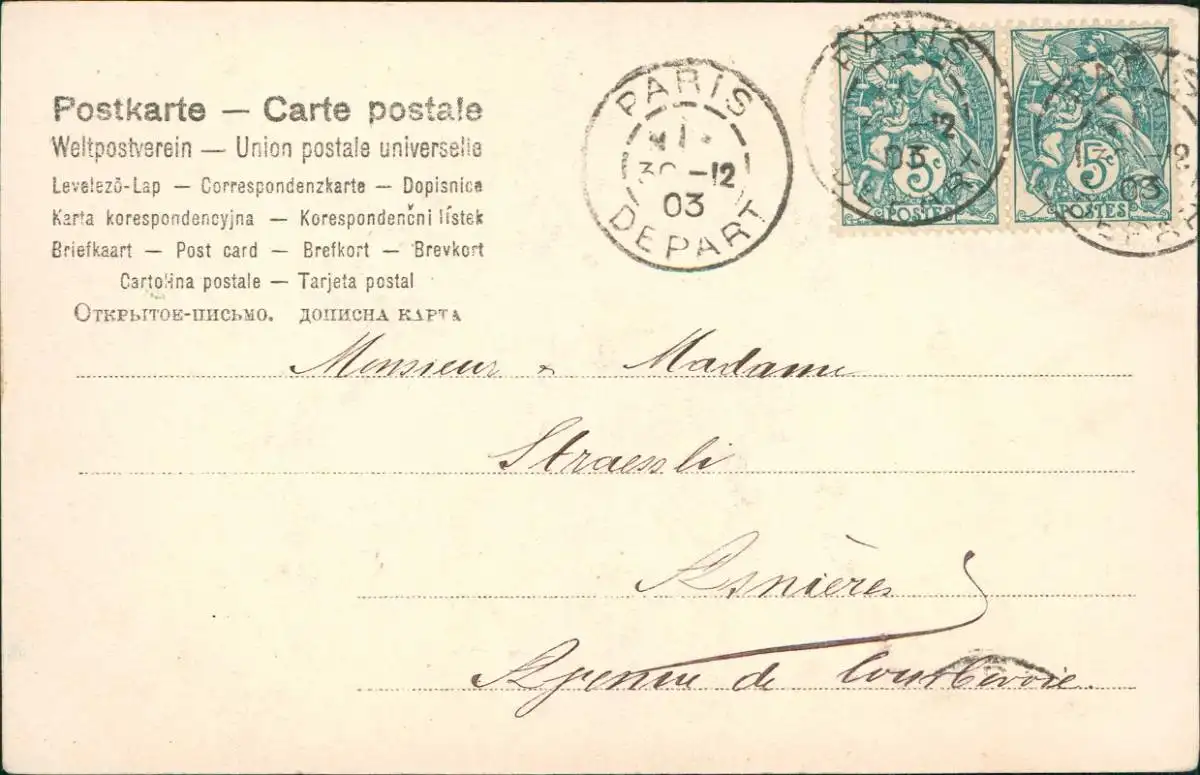 Postkarte — Carte postale
Weltpostverein — Union postale universelle
Levelezõ-Lap — Correspondenzkarte — Dopisnica
Karta korespondencyjna — Korespondenční lístek
Briefkaart — Post card — Brefkort — Brevkort
Cartolina postale — Tarjeta postal
Открытое-письмо. дописна карта
PARIS
30 -12
03
DEPART
PARIS
-12
03
5c
POSTES
-12
03
5c
POSTES
Monsieur & Madame
Straessli
Asnières
de Courbevoie.